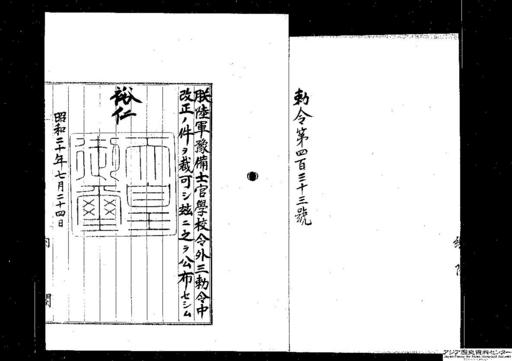 勅令第四百三十三號
朕陸軍豫備士官學校令外三勅令中
改正ノ件ヲ裁可シ玆ニ之ヲ公布セシム
裕仁
天皇
御璽
昭和二十年七月二十四日
内閣
アジア歴史資料センター
Japan Center for Asian Historical Records